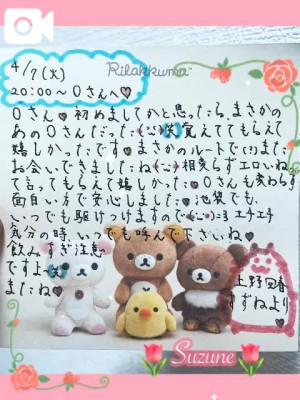 4/7(火)
Rilakkuma
20:00〜Oさんへ♥
Oさん♥初めましてかと思ったら、まさかの
あのOさんだった(笑)覚えててもらえて
嬉しかったです♥まさかのルートで(!?)また
お会いできましたね 相変らずエロいね
て言ってもらえて嬉しかった♥Oさんも変わらず
面白い方で安心しました♡池袋でも、
いつでも駆けつけますので =3 エチエチ
気分の時、いつでも呼んで下さいね♡
飲みすぎ注意
ですよ
またね♥
上野回春
すずねより
Suzune